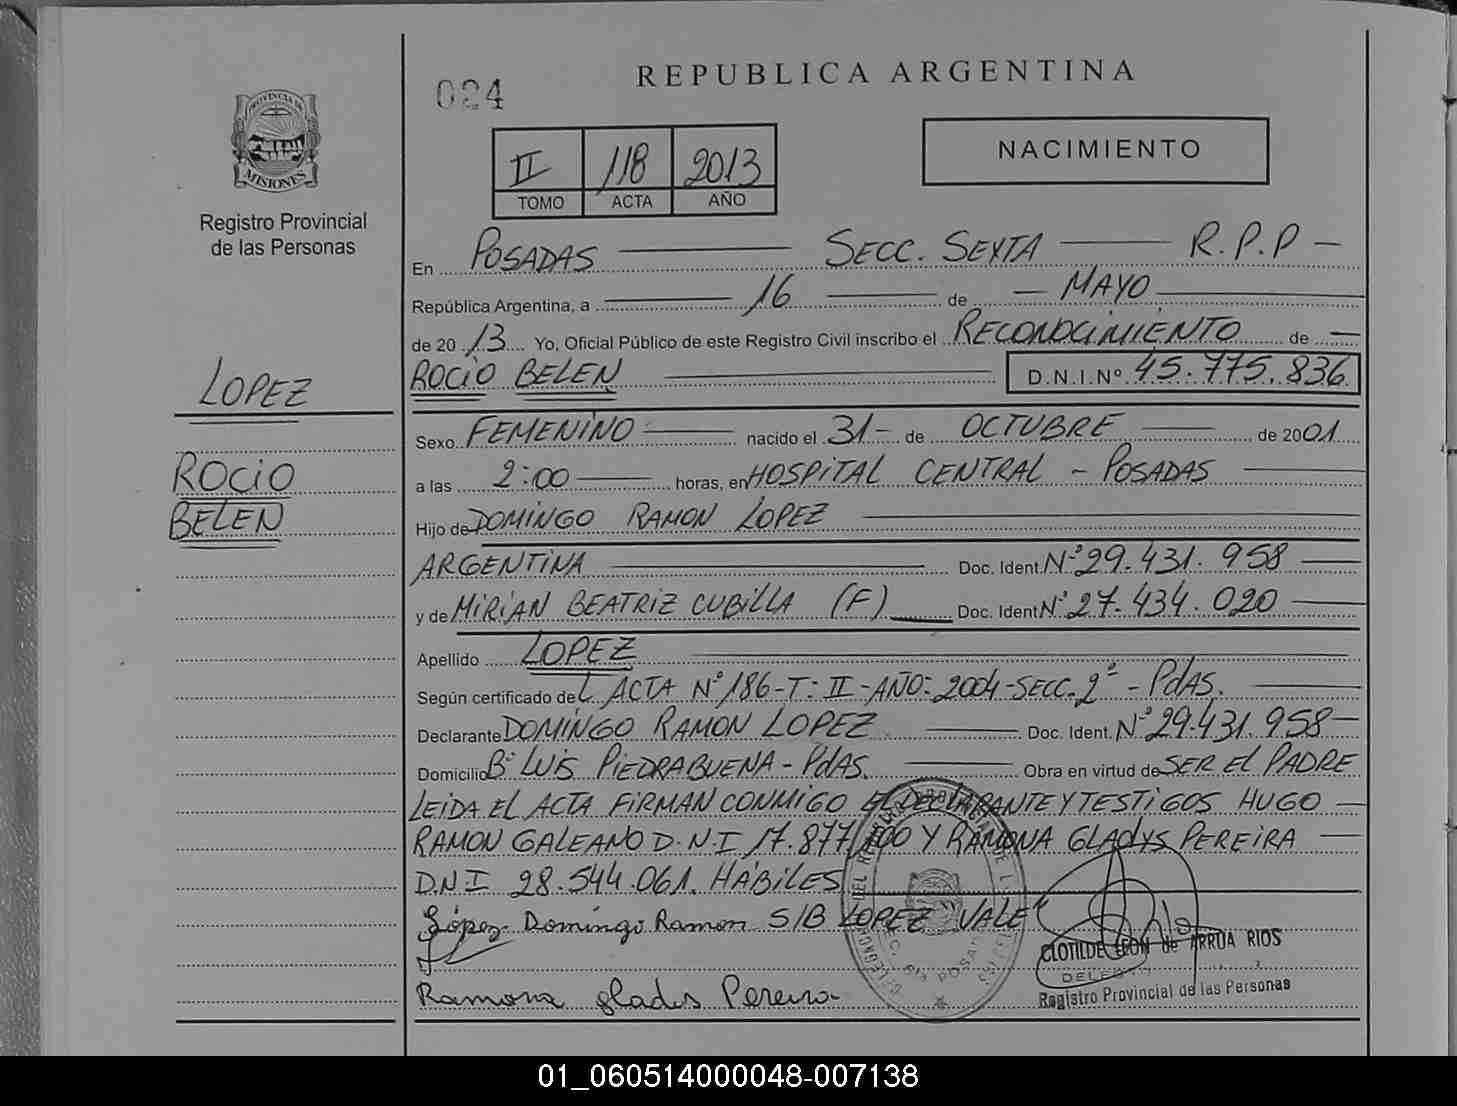 024
REPUBLICA ARGENTINA
PROVINCIA DE
MISIONES
Registro Provincial
de las Personas
II 118 2013
TOMO ACTA AÑO
NACIMIENTO
En POSADAS SECC. SEXTA R.P.P
República Argentina, a 16 de MAYO
de 2013 Yo, Oficial Público de este Registro Civil inscribo el RECONOCIMIENTO de
ROCIO BELEN D.N.I.Nº 45.775.836
LOPEZ
ROCIO
BELEN
Sexo FEMENINO nacido el 31 de OCTUBRE de 2001
a las 2:00 horas, en HOSPITAL CENTRAL - POSADAS
Hijo de DOMINGO RAMON LOPEZ
ARGENTINA Doc. Ident. Nº 29.431.958
y de MIRIAN BEATRIZ CUBILLA (F) Doc. Ident Nº 27.434.020
Apellido LOPEZ
Según certificado del ACTA Nº 186-T: II-AÑO: 2004-SECC. 2ª - PdAS.
Declarante DOMINGO RAMON LOPEZ Doc. Ident. Nº 29.431.958
Domicilio Bº LUIS PIEDRABUENA - PdAS. Obra en virtud de SER EL PADRE
LEIDA EL ACTA FIRMAN CONMIGO EL DECLARANTE Y TESTIGOS HUGO
RAMON GALEANO D.N.I 17.877.100 Y RAMONA GLADYS PEREIRA
D.N.I 28.544.061. HÁBILES
López Domingo Ramon S/B LOPEZ VALE
CLOTILDE LEON de ARRUA RIOS
Ramona glades Pereira
Registro Provincial de las Personas
01_060514000048-007138